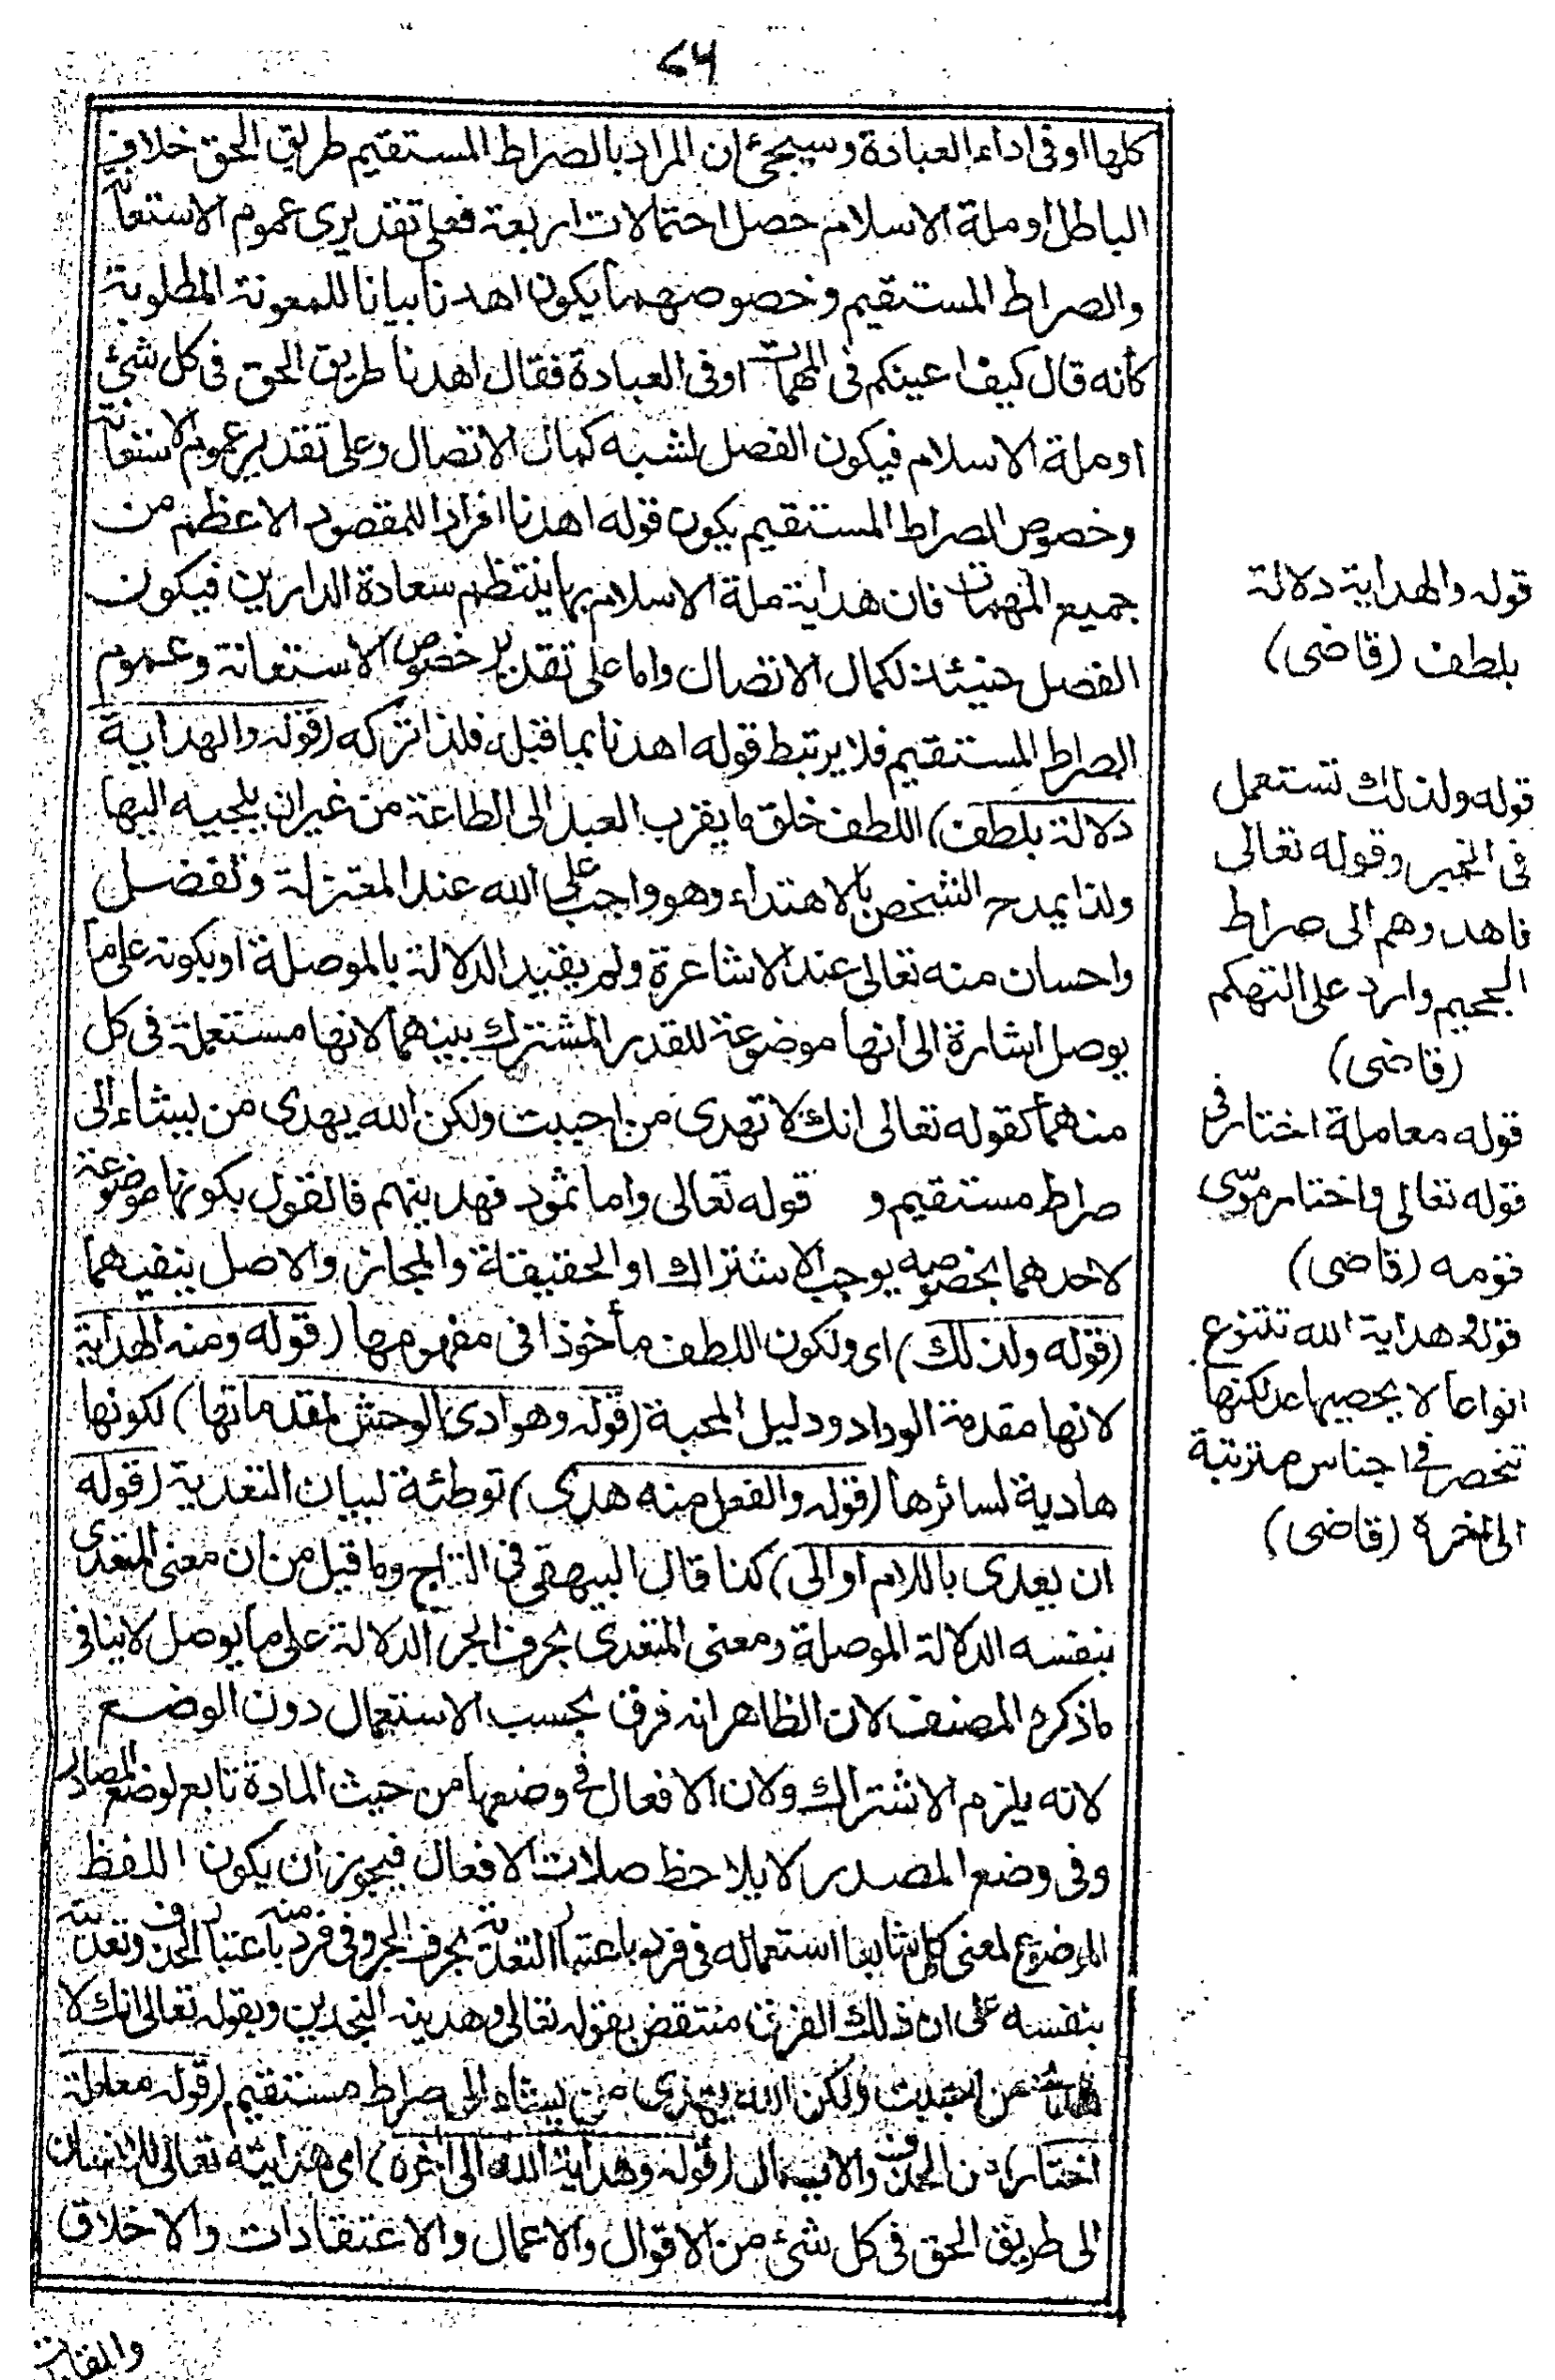 ٧٦
كلها او فى اداء العبادة وسيجئ ان المراد بالصراط المستقيم طريق الحق خلاف
الباطل او ملة الاسلام حصل احتمالات اربعة فعلى تقديرى عموم الاستعانة
والصراط المستقيم وخصوصهما يكون اهدنا بيانا للمعونة المطلوبة
كأنه قال كيف اعينكم فى المهمات او فى العبادة فقال اهدنا طريق الحق فى كل شئ
او ملة الاسلام فيكون الفصل لشبه كمال الاتصال وعلى تقدير عموم الاستعانة
وخصوص الصراط المستقيم يكون قوله اهدنا افرادا للمقصود الاعظم من
جميع المهمات فان هداية ملة الاسلام بها ينتظم سعادة الدارين فيكون
الفصل حينئذ لكمال الاتصال واما على تقدير خصوص الاستعانة وعموم
الصراط المستقيم فلا يرتبط قوله اهدنا بما قبله فلذا تركه (قوله والهداية
دلالة بلطف) اللطف خلق ما يقرب العبد الى الطاعة من غير ان يلجيه اليها
ولذا يمدح الشخص بالاهتداء وهو واجب على الله عند المعتزلة وتفضل
واحسان منه تعالى عند الاشاعرة ولم يقيد الدلالة بالموصلة او بكونه على ما
يوصل اشارة الى انها موضوعة للقدر المشترك بينهما لانها مستعملة فى كل
منهما كقوله تعالى انك لا تهدى من احببت ولكن الله يهدى من يشاء الى
صراط مستقيم و قوله تعالى واما ثمود فهديناهم فالقول بكونها موضوعة
لاحدهما بخصوصه يوجب الاشتراك او الحقيقة والمجاز والاصل ينفيهما
(قوله ولذلك) اى ولكون اللطف مأخوذا فى مفهومها (قوله ومنه الهداية
لانها مقدمة الوداد ودليل المحبة (قوله وهوادى الوحش لمقدماتها) لكونها
هادية لسائرها (قوله والفعل منه هدى) توطئة لبيان التعدية (قوله
ان يعدى باللام او الى) كذا قال البيهقى فى التاج وما قيل من ان معنى المتعدى
بنفسه الدلالة الموصلة ومعنى المتعدى بحرف الجر الدلالة على ما يوصل لا ينافى
ما ذكره المصنف لان الظاهر انه فرق بحسب الاستعمال دون الوضع
لانه يلزم الاشتراك ولان الافعال فى وضعها من حيث المادة تابع لوضع المصادر
وفى وضع المصدر لا يلاحظ صلات الافعال فيجوز ان يكون اللفظ
الموضوع لمعنى كلى استعماله فى فرد باعتبار التعدية بحرف الجر وفى فرد منه باعتبار الحذف وتعديته
بنفسه على ان ذلك الفرق منتقض بقوله تعالى وهديناه النجدين وبقوله تعالى انك لا
من احببت ولكن الله يهدى من يشاء الى صراط مستقيم (قوله معاملة
اختار) من الحذف والايصال (قوله وهداية الله الى اخره) اى هدايته تعالى للانسان
الى طريق الحق فى كل شئ من الاقوال والاعمال والاعتقادات والاخلاق
قوله والهداية دلالة
بلطف (قاضى)
قوله ولذلك تستعمل
فى الخير وقوله تعالى
فاهدوهم الى صراط
الجحيم وارد على التهكم
(قاضى)
قوله معاملة اختار فى
قوله تعالى واختار موسى
قومه (قاضى)
قوله وهداية الله تتنوع
انواعا لا يحصيها عد لكنها
تنحصر فى اجناس مترتبة
الى اخره (قاضى)